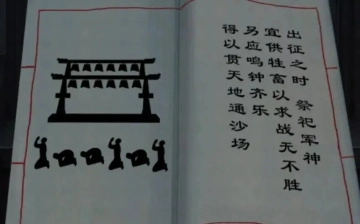 出征之时 祭祀军神
宜供牲畜以求战无不胜
另应鸣钟齐乐
得以贯天地通沙场